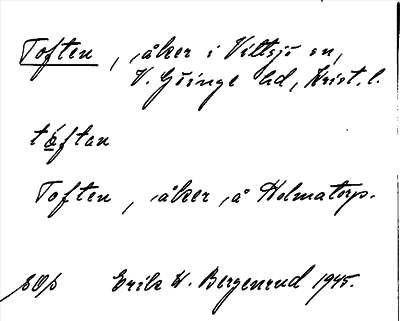 Toften, åker i Vittsjö sn,
V. Göinge hd, Krist. l.
tóftan
Toften, åker å Holmatorp.
Erik W. Bergenrud 1945.